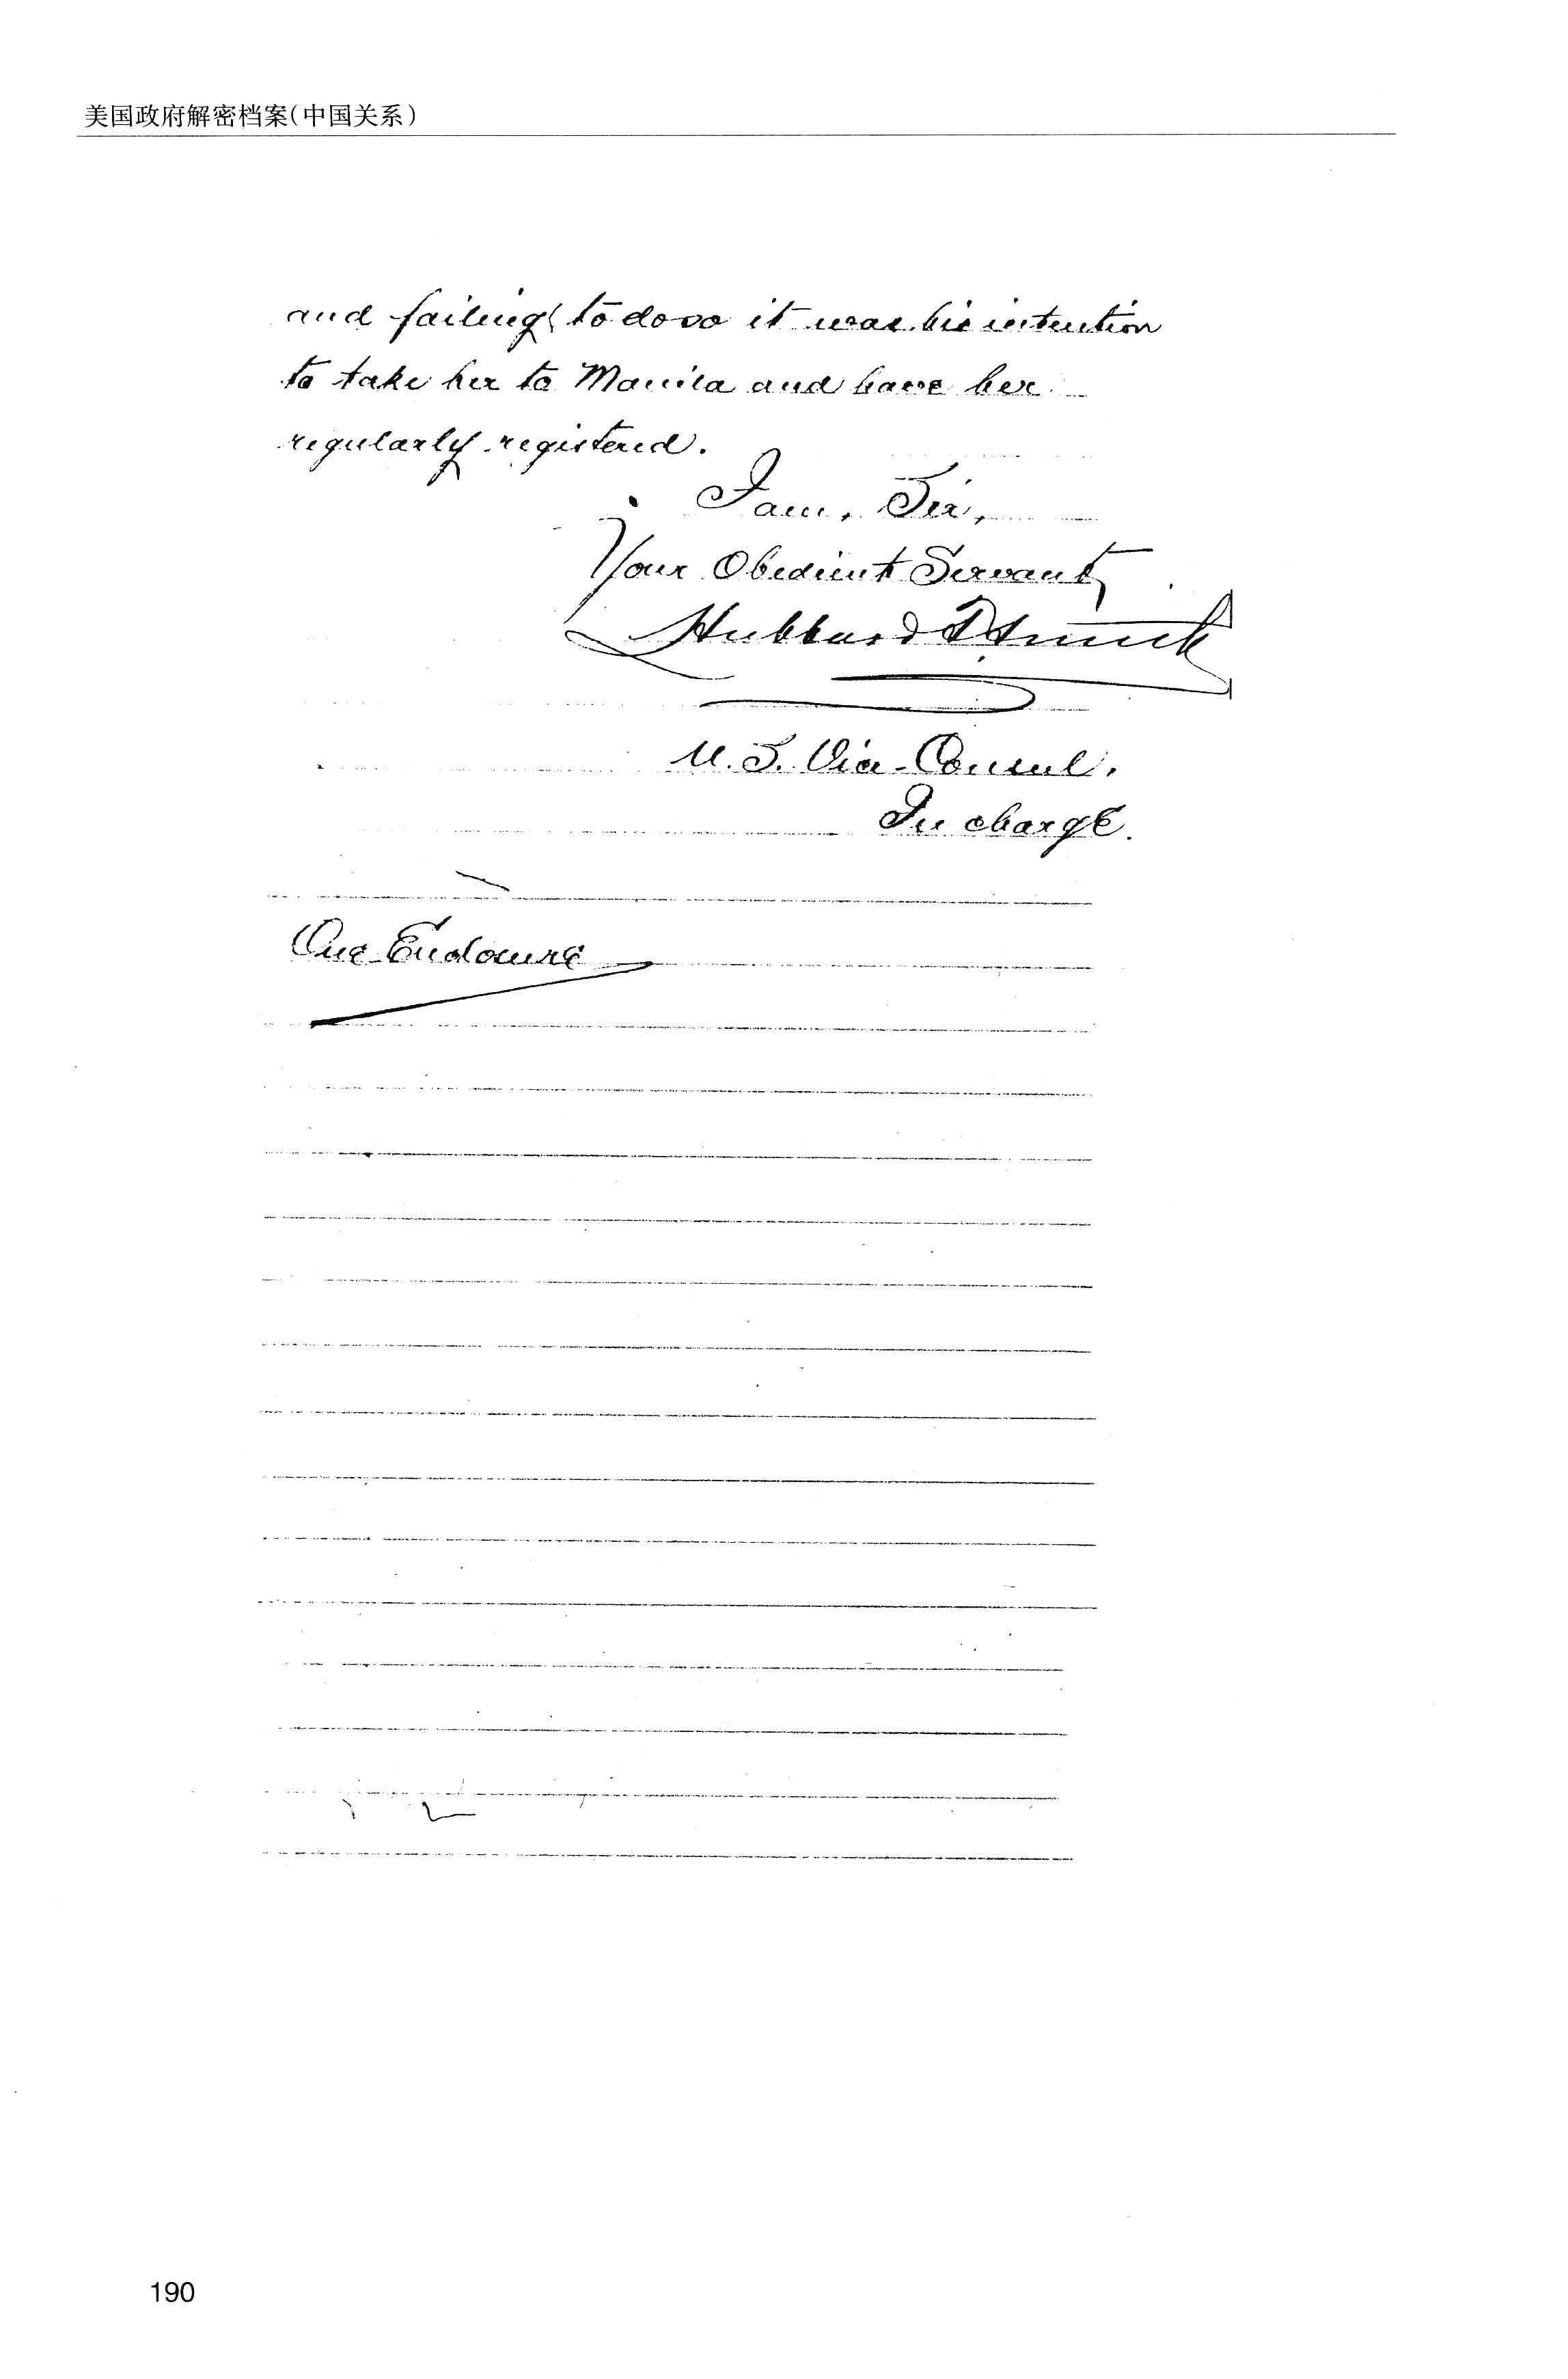 美国政府解密档案(中国关系)
and failing to do so it was his intention
to take her to Manila and have her
regularly registered.
I am, Sir,
Your Obedient Servant,
Hubbard T. Smith
U.S. Vice-Consul.
In charge.
One Enclosure
190